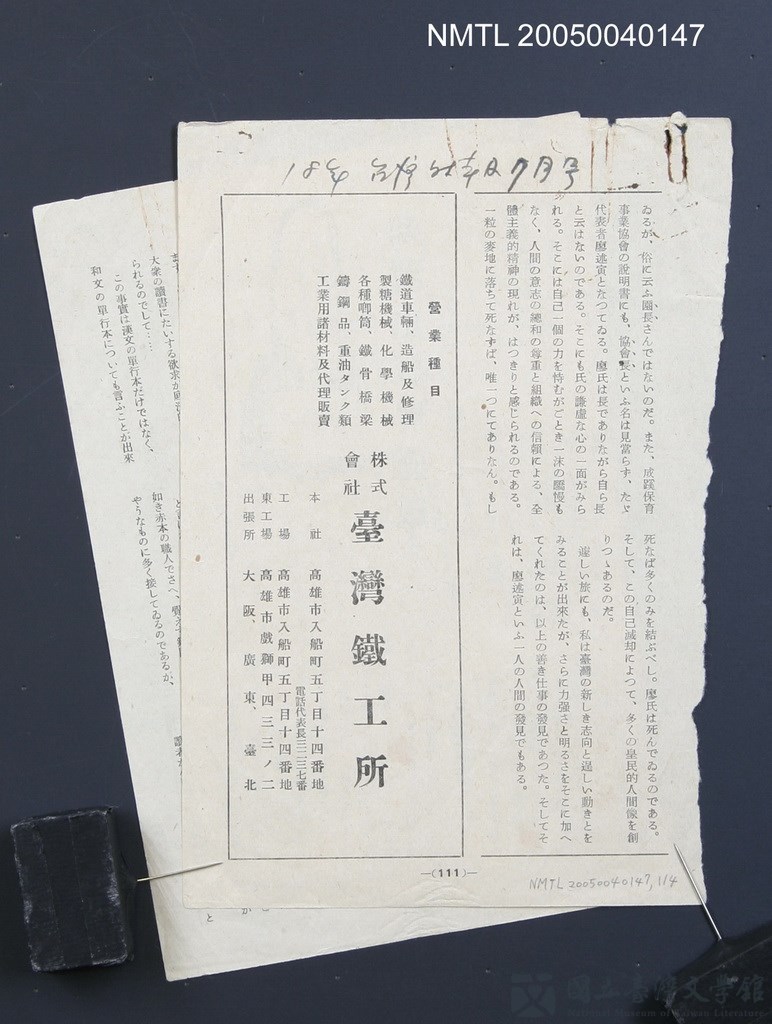 NMTL 20050040147
ゐるが、俗に云ふ園長さんではないのだ。また、成蹊保育
事業協會の說明書にも、協會長といふ名は見當らず、たゞ
代表者廖述寅となつてゐる。廖氏は長でありながら自ら長
と云はないのである。そこにも氏の謙虛な心の一面がみら
れる。そこには自己一個の力を恃むがごとき一沫の驕慢も
なく、人間の意志の總和の尊重と組織への信賴による、全
體主義的精神の現れが、はつきりと感じられるのである。
一粒の麥地に落ちて死なずば、唯一つにてありなん。もし
死なば多くのみを結ぶべし。廖氏は死んでゐるのである。
そして、この自己滅却によつて、多くの皇民的人間像を創
りつゝあるのだ。
遑しい旅にも、私は臺灣の新しき志向と逞しい動きとを
みることが出來たが、さらに力强さと明るさをそこに加へ
てくれたのは、以上の善き仕事の發見であつた。そしてそ
れは、廖述寅といふ一人の人間の發見でもある。
營業種目
鐵道車輛、造船及修理
製糖機械、化學機械
各種喞筒、鐵骨橋梁
鑄鋼品、重油タンク類
工業用諸材料及代理販賣
株式會社 臺灣鐵工所
本社 高雄市入船町五丁目十四番地
電話代表長三二三七番
工場 高雄市入船町五丁目十四番地
東工場 高雄市戲獅甲四三三ノ二
出張所 大阪、廣東、臺北
—(111)—
NMTL 20050040147, 1/4
大衆の讀書にたいする欲求が
られるのでして……
この事實は漢文の單行本だけではなく、
和文の單行本についても言ふことが出來
如き赤本の職人でさへ、
やうなものに多く接してゐるのであるが、
か
と
國立臺灣文學館
National Museum of Taiwan Literature